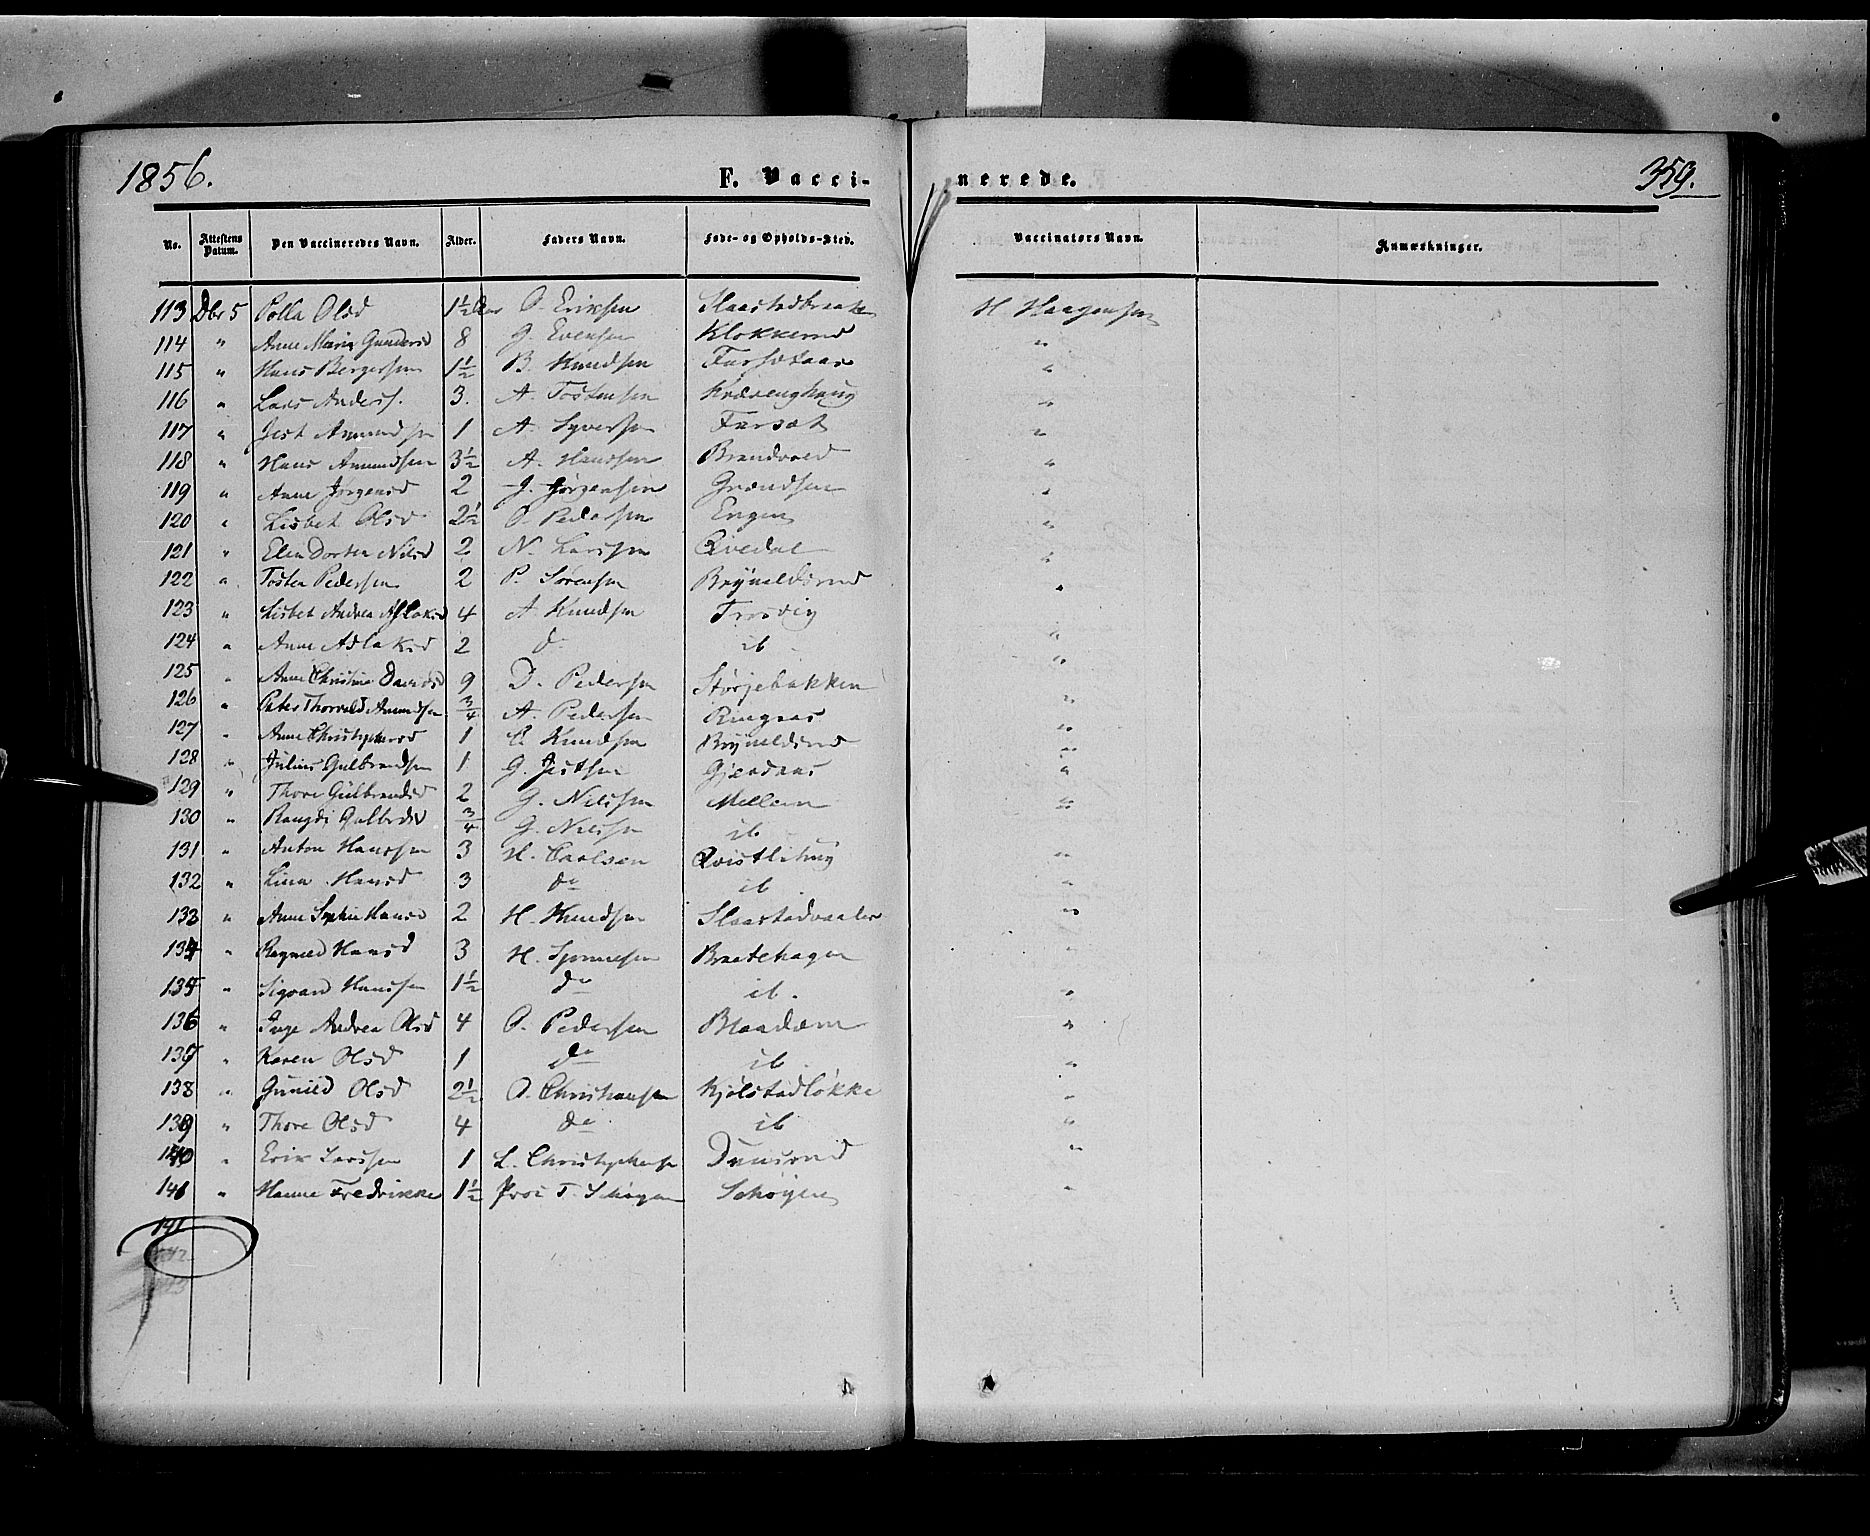 1856.
F. Vacci-
nerede.
359.
No. Attestens Datum. Den Vaccineredes Navn. Alder. Faders Navn. Føde- og Opholds-Sted. Vaccinators Navn. Anmærkninger.
113 Dbr 5 Polla Olsd 1½ O. Eriksen H. Haagensen
114 " Anne Maria Gundersd 8 G. Evensen Klokkerud "
115 " Hans Bergersen 1½ B. Knudsen "
116 " Lars Anders. 3. A. Tostensen "
117 " Jest Amundsen 1 A. Syversen Fursæt "
118 " Hans Amundsen 3½ A. Hansen Brandvold "
119 " Anne Jørgensd 2 J. Jørgensen "
120 " Lisbet Olsd 2½ O. Pedersen Engen "
121 " Elen Dortea Nilsd 2 N. Larssen Qvedal "
122 " Tosten Pedersen 2 P. Sørensen Brynildsrud "
123 " Lisbet Andrea Aslaksd 4 A. Knudsen Trosvig "
124 " Anne Aslaksd 2 do ib "
125 " Anne Christine Davidsd 9 D. Pedersen Størjebakken "
126 " Peter Thorvald Amundsen ¾ A. Pedersen Ringaas "
127 " Anne Christophersd 1 C. Knudsen Brynildsrud "
128 " Julius Gulbrandsen 1 G. Jestsen "
129 " Thore Gulbrandsd 2 G. Nilssen Mellem "
130 " Rangdi Gulbrdsd ¾ G. Nilssen ib "
131 " Anton Hanssen 3 H. Carlsen Qvistlihug "
132 " Lina Hansd 3 do ib "
133 " Anne Sophie Hansd 2 H. Knudsen "
134 " Ragnild Hansd 3 H. Braatehagen "
135 " Sigvard Hanssen 1½ do ib. "
136 " Inge Andrea Olsd 4 O. Pedersen "
137 " Karen Olsd 1 do ib "
138 " Gunild Olsd 2½ O. Christiansen Kjølstadløkke "
139 " Thore Olsd 4 do ib "
140 " Erik Larssen 1 L. Christophersen "
141 " Hanne Fredrikke 1½ T. Schøyen Schøyen "
141
142